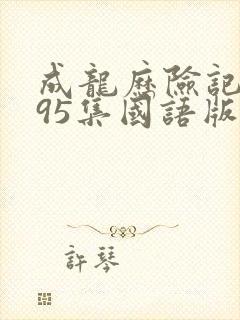 成龍歷險記
95集國語版
許琴